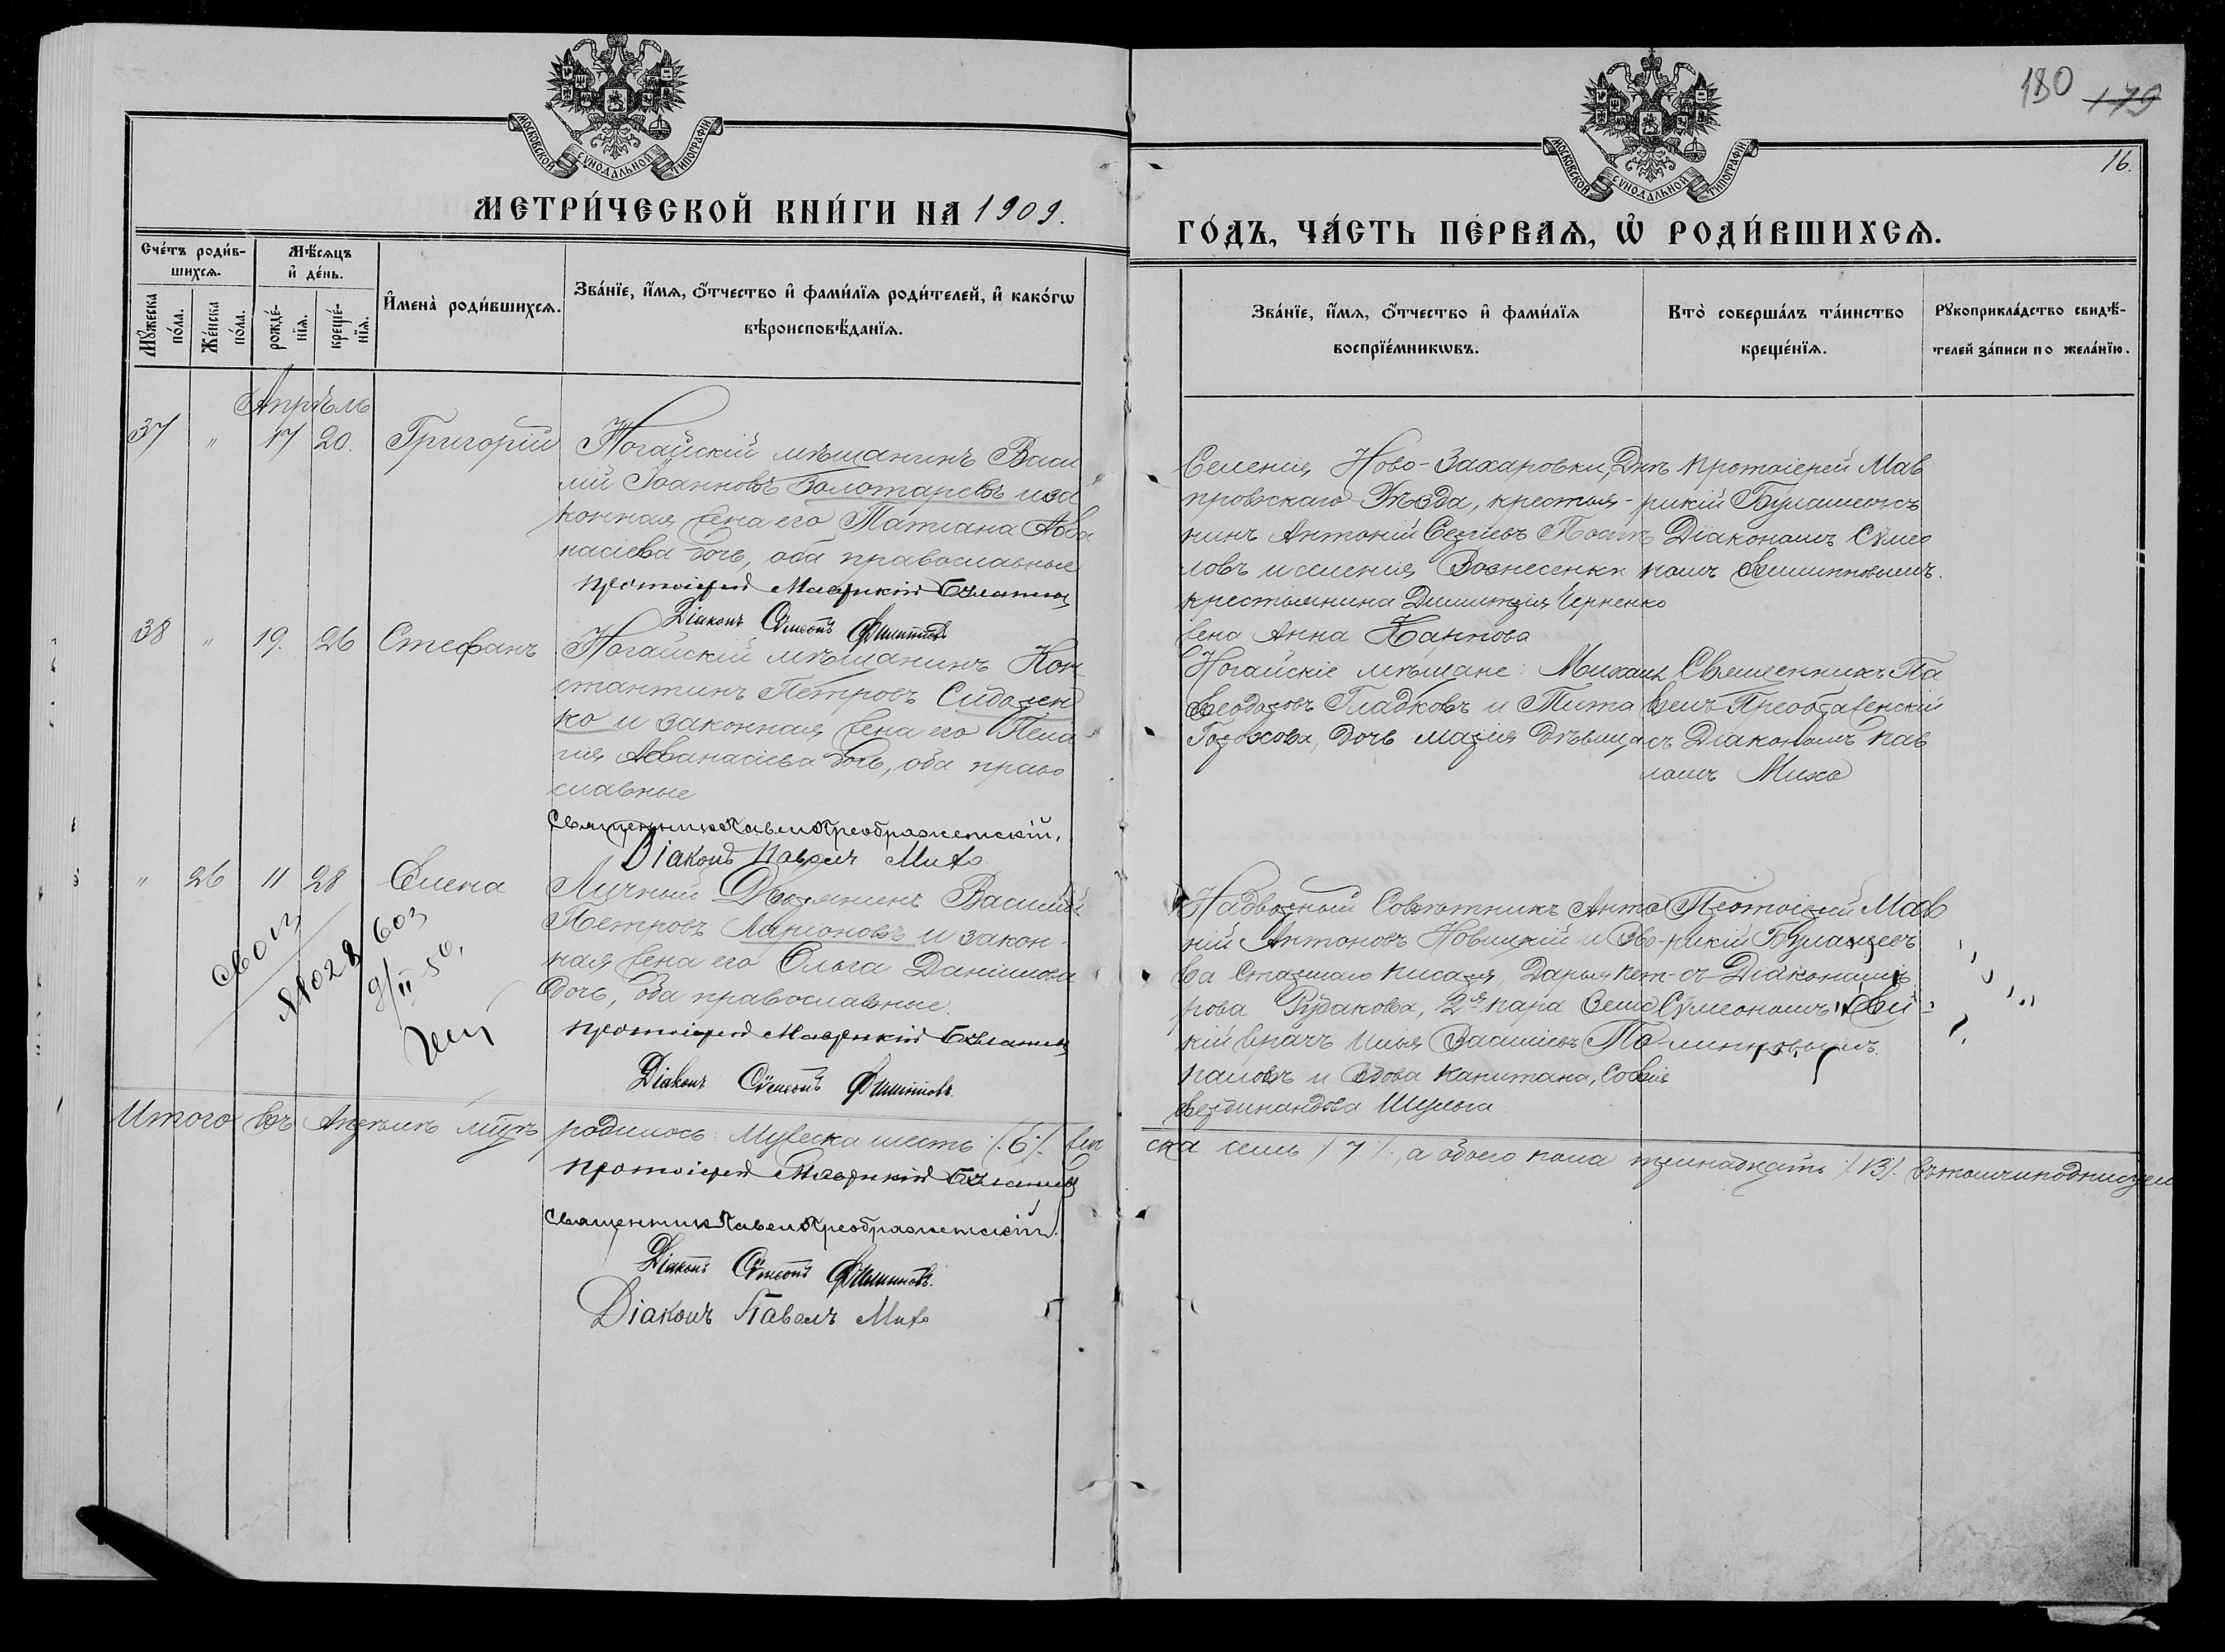 180 179
16.
МОСКОВСКОЙ СѴНОДАЛЬНОЙ ТИПОГРАФІИ
МОСКОВСКОЙ СѴНОДАЛЬНОЙ ТИПОГРАФІИ
МЕТРИ́ЧЕСКОЙ КНИ́ГИ НА 1909.
ГО́ДЪ, ЧА́СТЬ ПЕ́РВАѦ, Ѡ҆ РОДИ́ВШИХСѦ.
Сче́тъ роди́в-
шихсѧ.
Мꙋ́жеска по́ла.
Же́нска по́ла.
Мѣ́сѧцъ
и҆ де́нь.
рожде́-нїѧ.
креще́-нїѧ.
И҆мена̀ роди́вшихсѧ.
Зва́нїе, и҆́мѧ, ѻ҆́тчество и҆ фами́лїѧ роди́телей, и҆ како́гѡ
вѣроисповѣ́данїѧ.
Зва́нїе, и҆́мѧ, ѻ҆́тчество и҆ фами́лїѧ
воспрїе́мникѡвъ.
Кто̀ соверша́лъ та́инство
креще́нїѧ.
Рꙋкоприкла́дство свидѣ́-
телей за́писи по жела́нїю.
Апрѣль
37 " 17 20. Григорій
Ногайскій мѣщанинъ Васи
лій Іоанновъ Золотаревъ и за
конная жена его Татіана Аѳа
насіева дочь, оба православные
Протоіерей Маврикій Булашевъ
Діаконъ Сѵмеонъ Филипповъ
Селенія Ново-Захаровки, Днѣ
провскаго уѣзда, крестья-
нинъ Антоній Сергіевъ
ловъ и селенія Вознесенки
крестьянина Димитрія Черненко
жена Анна Карпова
Протоіерей Мав
рикій Булашевъ съ
Діакономъ Сѵмео
номъ Филипповымъ.
38 " 19. 26 Стефанъ
Ногайскій мѣщанинъ Кон
стантинъ Петровъ Сидорен
ко и законная жена его Пела
гия Аѳанасіева дочь, оба право
славные
Священникъ Павелъ Преображенскій.
Діаконъ Павелъ Михо
Ногайскіе мѣщане: Михаил
Ѳеодоровъ Гладковъ и Тита
дочь Марія дѣвица
Священникъ Па
велъ Преображенскій
съ Діакономъ Пав
ломъ Михо
" 26 11 28 Елена
Личный Дворянинъ Василій
Петровъ Ларіоновъ и закон-
ная жена его Ольга Даніилова
дочь, оба православные.
Протоіерей Маврикій Булашевъ
Діаконъ Сѵмеонъ Филипповъ.
Надворный Совѣтникъ Анто
ній Антоновъ Новицкій и вдо-
ва старшаго писаря, Дарья Пет-
рова Рудакова, 2я пара Земс
кій врачъ Илья Васильевъ По
паловъ и вдова капитана, Софія
Фердинандова Шульга
Протоіерей Мав
рикій Булашевъ
съ Діакономъ
Сѵмеономъ Фи
липповымъ.
Итого въ Апрѣлѣ мцѣ родилось: Мужеска шесть /.6/. жен
ска семь / 7 /., а обоего пола тринадцать /. 13/. въ томъ и подписуем
Протоіерей Маврикій Булашевъ
Священникъ Павелъ Преображенскій.
Діаконъ Сѵмеонъ Филипповъ.
Діаконъ Павелъ Михо